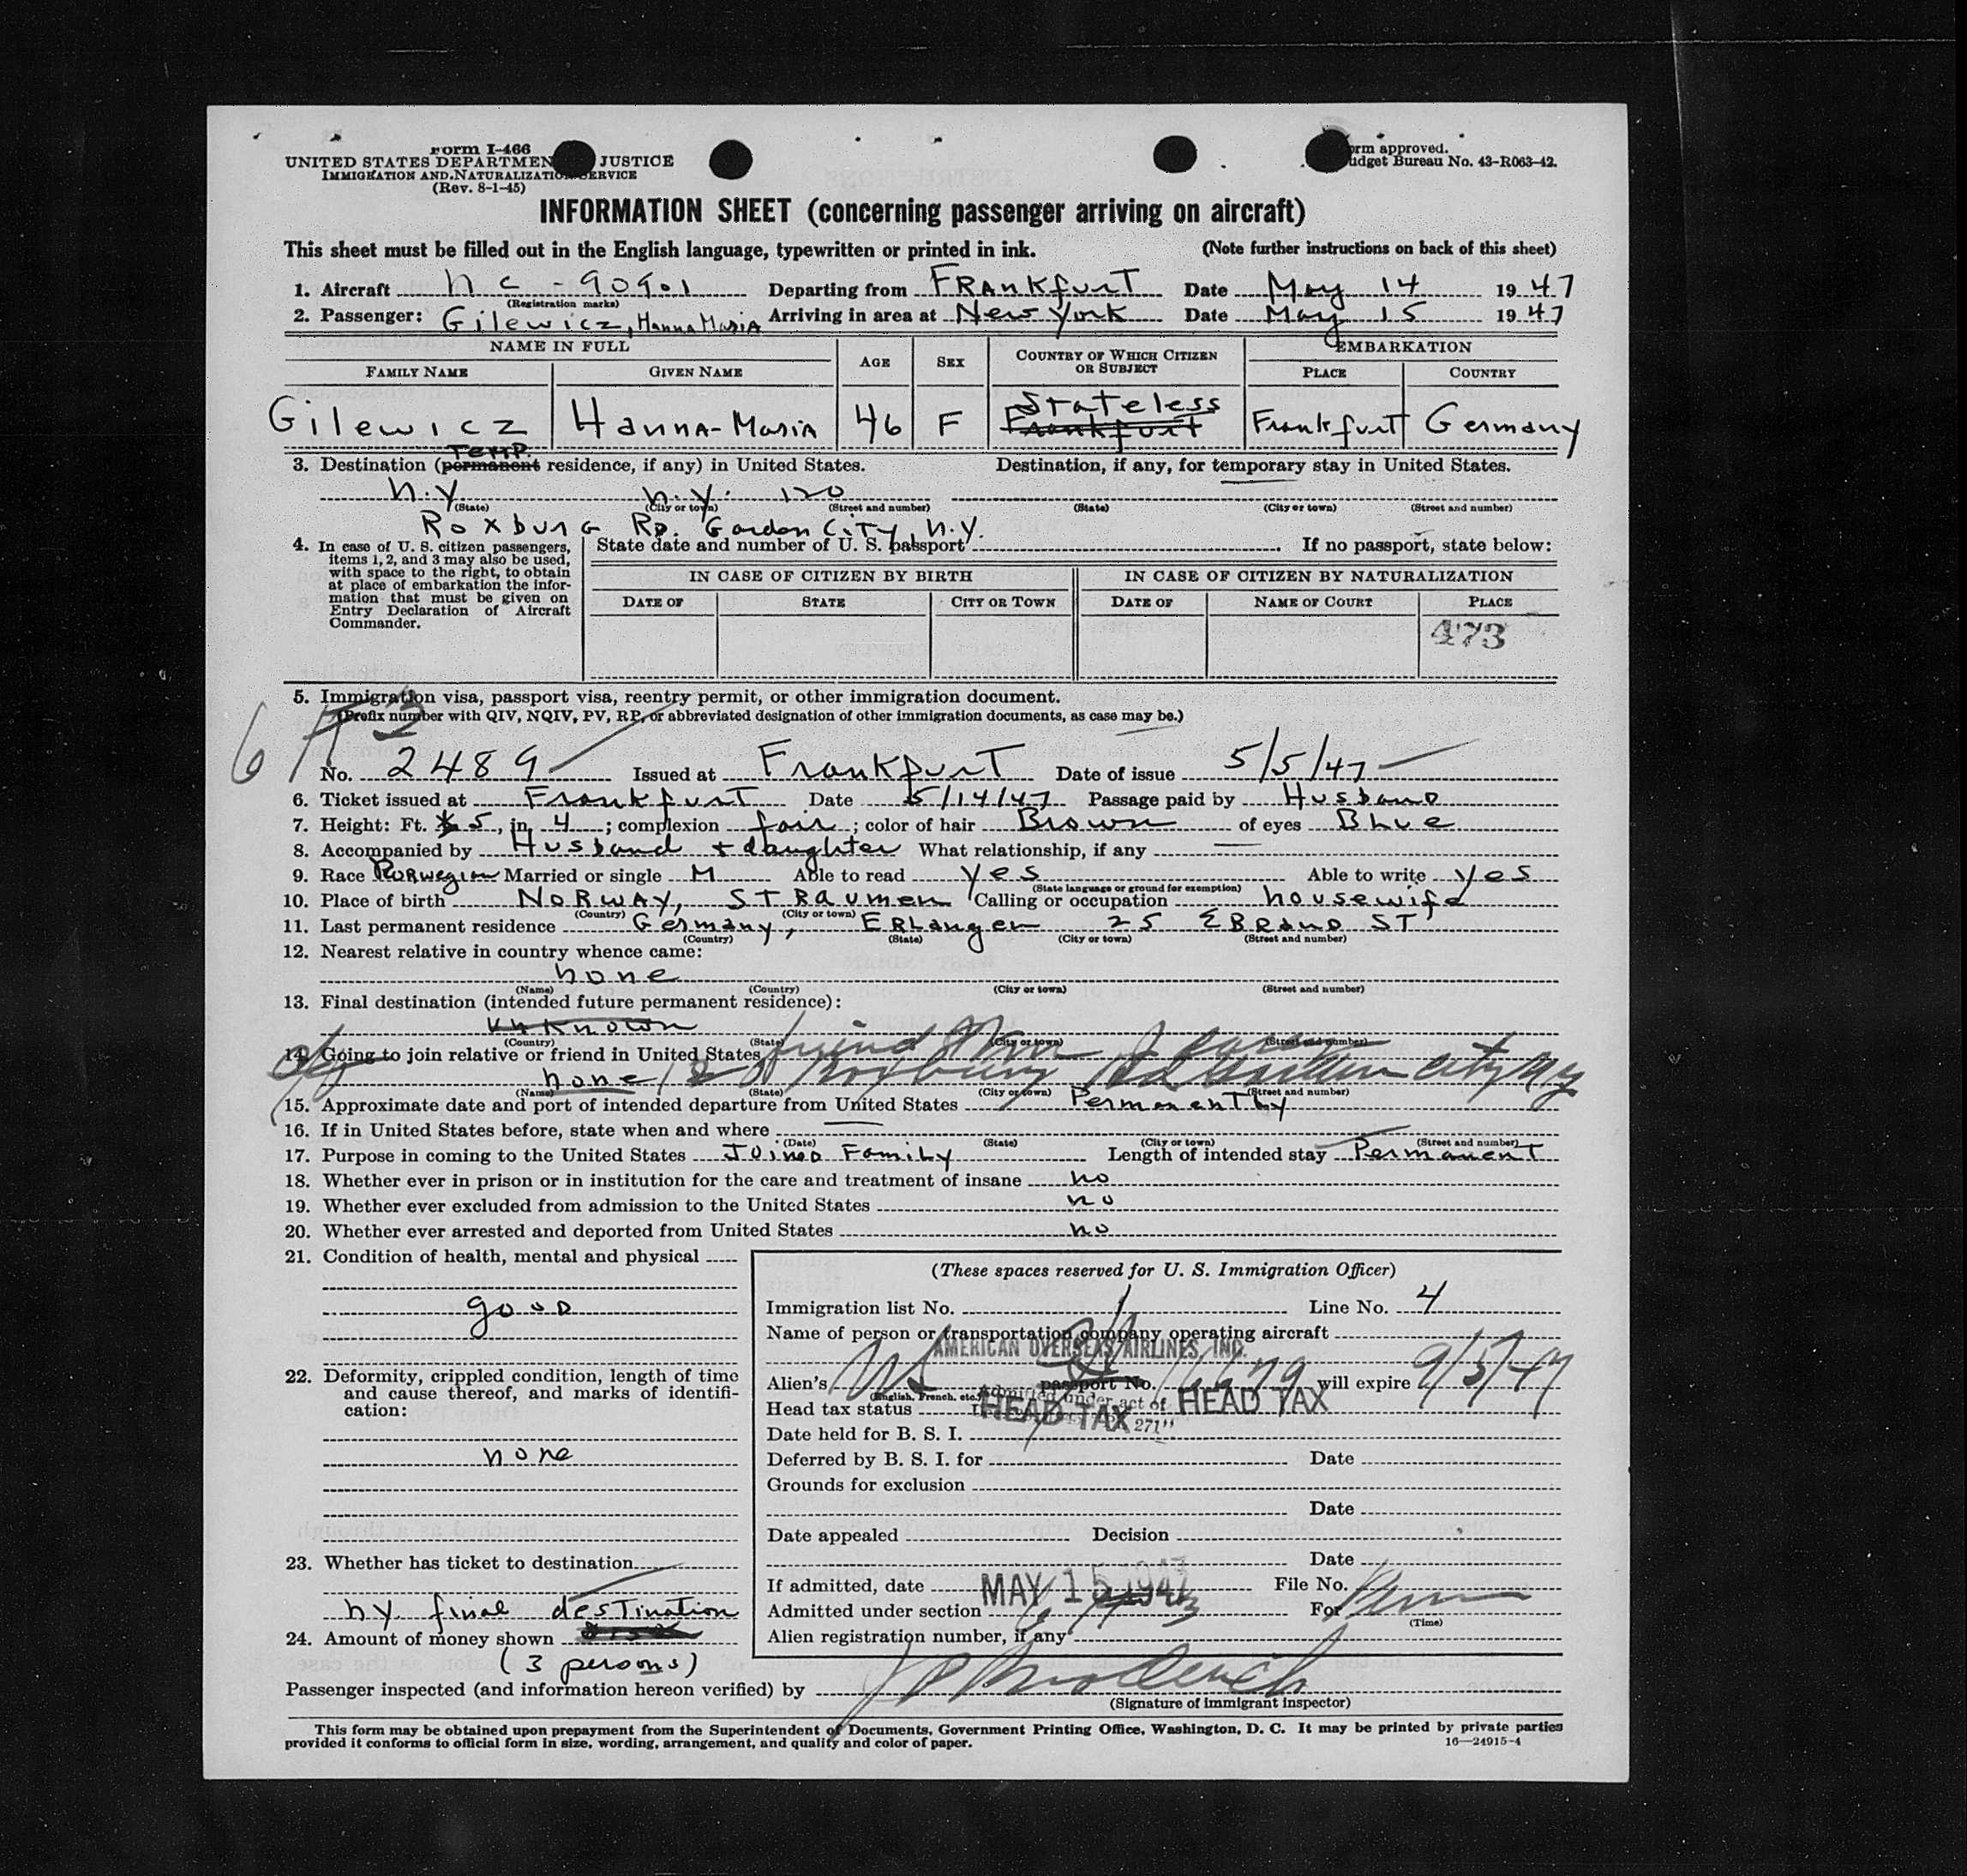 Form I-466
UNITED STATES DEPARTMEN JUSTICE
IMMIGRATION AND NATURALIZATION SERVICE
(Rev. 8-1-45)
orm approved.
udget Bureau No. 43-R063-42.
INFORMATION SHEET (concerning passenger arriving on aircraft)
This sheet must be filled out in the English language, typewritten or printed in ink. (Note further instructions on back of this sheet)
1. Aircraft NC-90901 Departing from Frankfurt Date May 14 1947
(Registration marks)
2. Passenger: Gilewicz, Hanna Maria Arriving in area at New York Date May 15 1947
NAME IN FULL AGE SEX COUNTRY OF WHICH CITIZEN OR SUBJECT EMBARKATION
FAMILY NAME GIVEN NAME PLACE COUNTRY
Stateless
Gilewicz Hanna-Maria 46 F Frankfurt Frankfurt Germany
Temp.
3. Destination (permanent residence, if any) in United States. Destination, if any, for temporary stay in United States.
N.Y. N.Y. 120
(State) (City or town) (Street and number) (State) (City or town) (Street and number)
Roxburg Rd. Garden City, N.Y.
4. In case of U. S. citizen passengers, items 1, 2, and 3 may also be used, with space to the right, to obtain at place of embarkation the information that must be given on Entry Declaration of Aircraft Commander.
State date and number of U. S. passport If no passport, state below:
IN CASE OF CITIZEN BY BIRTH IN CASE OF CITIZEN BY NATURALIZATION
DATE OF STATE CITY OR TOWN DATE OF NAME OF COURT PLACE
473
5. Immigration visa, passport visa, reentry permit, or other immigration document.
(Prefix number with QIV, NQIV, PV, RP, or abbreviated designation of other immigration documents, as case may be.)
No. 2489 Issued at Frankfurt Date of issue 5/5/47
6. Ticket issued at Frankfurt Date 5/14/47 Passage paid by Husband
7. Height: Ft. 5, in. 4; complexion fair; color of hair Brown of eyes Blue
8. Accompanied by Husband + daughter What relationship, if any
9. Race Norwegian Married or single M Able to read Yes Able to write Yes
(State language or ground for exemption)
10. Place of birth Norway, Straumen Calling or occupation housewife
(Country) (City or town)
11. Last permanent residence Germany, Erlangen 25 Ebrand St
(Country) (State) (City or town) (Street and number)
12. Nearest relative in country whence came:
none
(Name) (Country) (City or town) (Street and number)
13. Final destination (intended future permanent residence):
unknown
(Country) (State) (City or town) (Street and number)
14. Going to join relative or friend in United States friend
none 120 Roxbury Rd Garden City NY
(Name) (State) (City or town) (Street and number)
15. Approximate date and port of intended departure from United States Permanently
16. If in United States before, state when and where
(Date) (State) (City or town) (Street and number)
17. Purpose in coming to the United States Joined Family Length of intended stay Permanent
18. Whether ever in prison or in institution for the care and treatment of insane no
19. Whether ever excluded from admission to the United States no
20. Whether ever arrested and deported from United States no
21. Condition of health, mental and physical
good
22. Deformity, crippled condition, length of time and cause thereof, and marks of identification:
none
23. Whether has ticket to destination
NY final destination
24. Amount of money shown
(3 persons)
(These spaces reserved for U. S. Immigration Officer)
Immigration list No. 1 Line No. 4
Name of person or transportation company operating aircraft
AMERICAN OVERSEAS AIRLINES, INC.
Alien's passport No. 16679 will expire 9/5/47
(English, French, etc.)
Head tax status HEAD TAX HEAD TAX
Date held for B. S. I.
Deferred by B. S. I. for Date
Grounds for exclusion
Date
Date appealed Decision
Date
If admitted, date MAY 15 1947 File No.
Admitted under section For Perm
(Time)
Alien registration number, if any
Passenger inspected (and information hereon verified) by
(Signature of immigrant inspector)
This form may be obtained upon prepayment from the Superintendent of Documents, Government Printing Office, Washington, D. C. It may be printed by private parties
provided it conforms to official form in size, wording, arrangement, and quality and color of paper. 16—24915-4